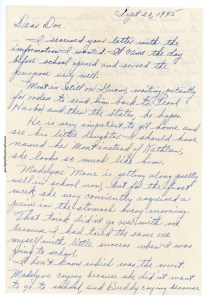 Sept 20, 1945
Dear Doc.
I received your letter with the
information I wanted. It came the day
before school opened and served the
purpose very well.
Mont is still on Guam, waiting patiently
for orders to send him back to Pearl
Harbor and then the States, he hopes.
He is very anxious to get home and
see his little daughter. I should have
named her Mont instead of Kathleen,
she looks so much like him.
Madelyne Marie is getting along pretty
well in school now, but for the first
week she very conveniently acquired a
pain in the stomach every morning.
That trick didn't go over with me
because I had tried the same one
myself with little success when I was
going to school.
I don't know which was the worst
Madelyne crying because she didn't want
to go to school and Buddy crying because